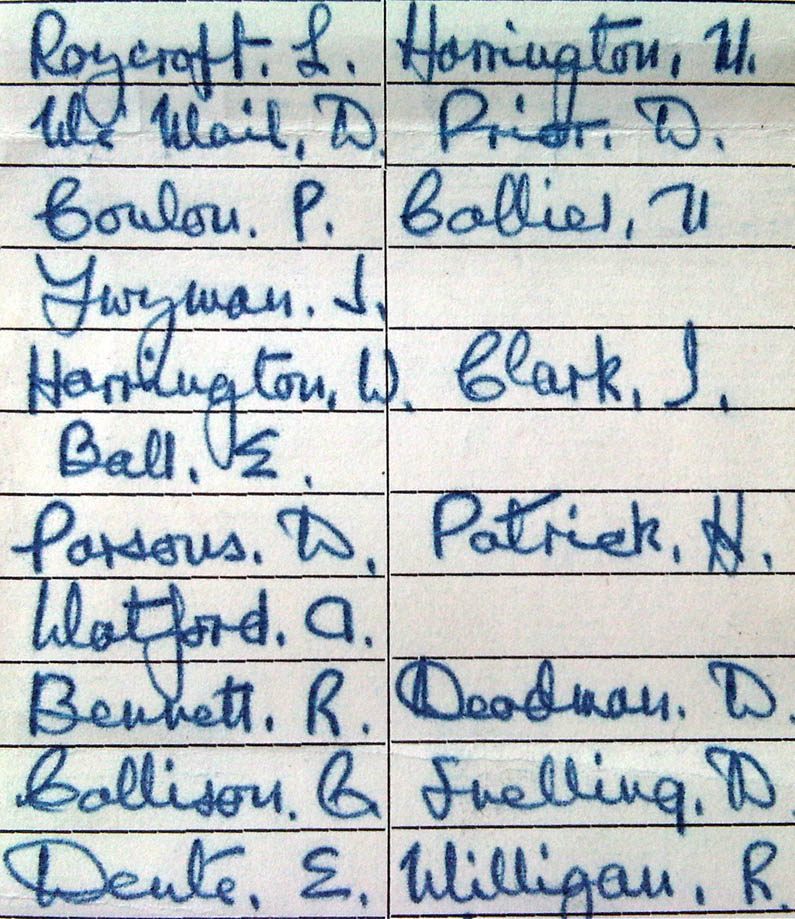 Roycroft. L. Harrington, M.
Mc Nail, D. Prior. D.
Conlon. P. Collier, M
Twyman. J.
Harrington, W. Clark, J.
Ball. E.
Parsons. D. Patrick, H.
Watford. A.
Bennett. R. Deadman. D.
Collison. C. Snelling. D
Dente. E. Milligan, R.